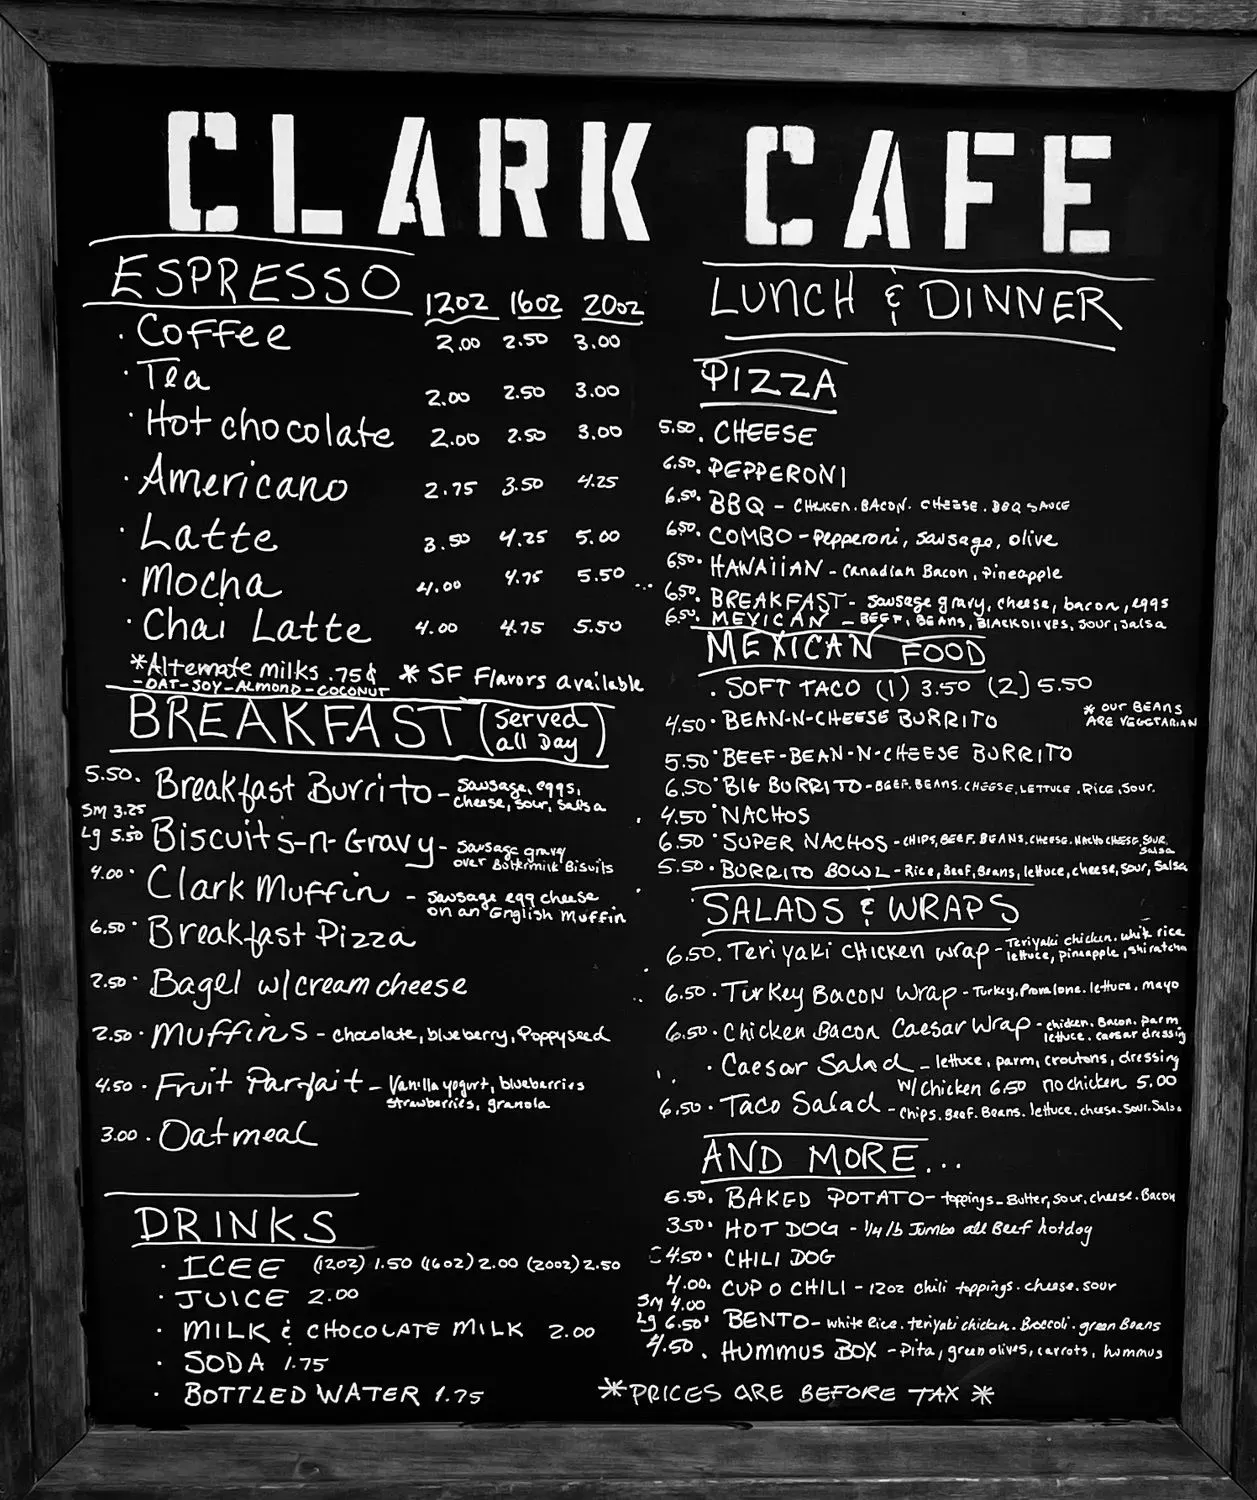 CLARK CAFE
ESPRESSO
12oz 16oz 20oz
· Coffee 2.00 2.50 3.00
· Tea 2.00 2.50 3.00
· Hot chocolate 2.00 2.50 3.00
· Americano 2.75 3.50 4.25
· Latte 3.50 4.25 5.00
· Mocha 4.00 4.75 5.50
· Chai Latte 4.00 4.75 5.50
*Alternate milks .75¢ * SF Flavors available
-OAT-SOY-ALMOND-COCONUT
BREAKFAST (Served all Day)
5.50. Breakfast Burrito - Sausage, eggs,
cheese, sour, salsa
SM 3.25
Lg 5.50 Biscuits-n-Gravy - Sausage gravy
over Buttermilk Bisuits
4.00· Clark Muffin - Sausage egg cheese
on an English Muffin
6.50· Breakfast Pizza
2.50· Bagel w/creamcheese
2.50· Muffins - chocolate, blueberry, Poppyseed
4.50· Fruit Parfait - Vanilla yogurt, blueberries
strawberries, granola
3.00· Oatmeal
DRINKS
· ICEE (12oz) 1.50 (16oz) 2.00 (20oz) 2.50
· JUICE 2.00
· MILK & CHOCOLATE MILK 2.00
· SODA 1.75
· BOTTLED WATER 1.75
LUNCH & DINNER
PIZZA
5.50. CHEESE
6.50. PEPPERONI
6.50. BBQ - CHICKEN. BACON. CHEESE. BBQ SAUCE
6.50. COMBO - Pepperoni, sausage, olive
6.50. HAWAIIAN - Canadian Bacon, Pineapple
6.50. BREAKFAST - Sausage gravy, cheese, bacon, eggs
6.50. MEXICAN - BEEF, BEANS, BLACK OLIVES, SOUR, Salsa
MEXICAN FOOD
. SOFT TACO (1) 3.50 (2) 5.50
* OUR BEANS
ARE VEGETARIAN
4.50· BEAN-N-CHEESE BURRITO
5.50· BEEF-BEAN-N-CHEESE BURRITO
6.50· BIG BURRITO - BEEF. BEANS. CHEESE, LETTUCE. RICE, SOUR.
4.50· NACHOS
6.50· SUPER NACHOS - CHIPS, BEEF. BEANS, CHEESE. NACHO CHEESE, SOUR,
Salsa
5.50· BURRITO BOWL - Rice, Beef, Beans, lettuce, cheese, sour, Salsa
SALADS & WRAPS
6.50. Teriyaki Chicken wrap - Teriyaki chicken. white rice
lettuce, pineapple, shiratcha
6.50· Turkey Bacon Wrap - Turkey. Provalone. lettuce. mayo
6.50· Chicken Bacon Caesar Wrap - chicken. Bacon. parm
lettuce. caesar dressing
· Caesar Salad - lettuce, parm, croutons, dressing
W/Chicken 6.50 no chicken 5.00
6.50· Taco Salad - Chips. Beef. Beans. lettuce. cheese. Sour. Salsa
AND MORE...
5.50. BAKED POTATO - toppings - Butter, sour, cheese. Bacon
3.50· HOT DOG - 1/4 lb Jumbo all Beef hotdog
4.50· CHILI DOG
4.00. CUP O CHILI - 12oz chili toppings. cheese. sour
SM 4.00
Lg 6.50· BENTO - white Rice. teriyaki chicken. Broccoli. green Beans
4.50. HUMMUS BOX - Pita, green olives, carrots, hummus
*PRICES ARE BEFORE TAX*